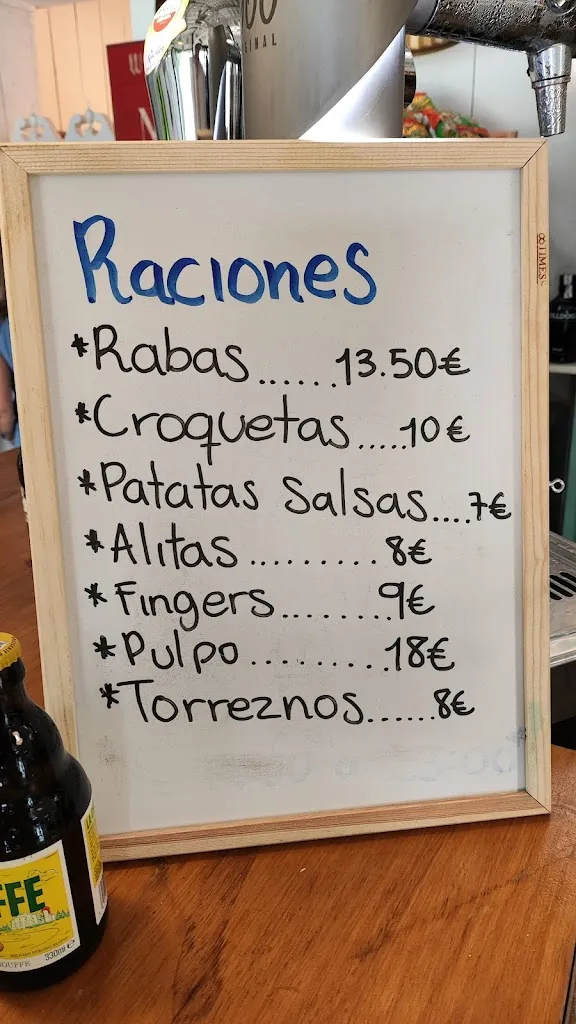 Raciones
*Rabas......13.50€
*Croquetas.....10€
*Patatas Salsas....7€
*Alitas.........8€
*Fingers.......9€
*Pulpo.........18€
*Torreznos......8€
8TIMES
FFE
OUFFE 330ml e